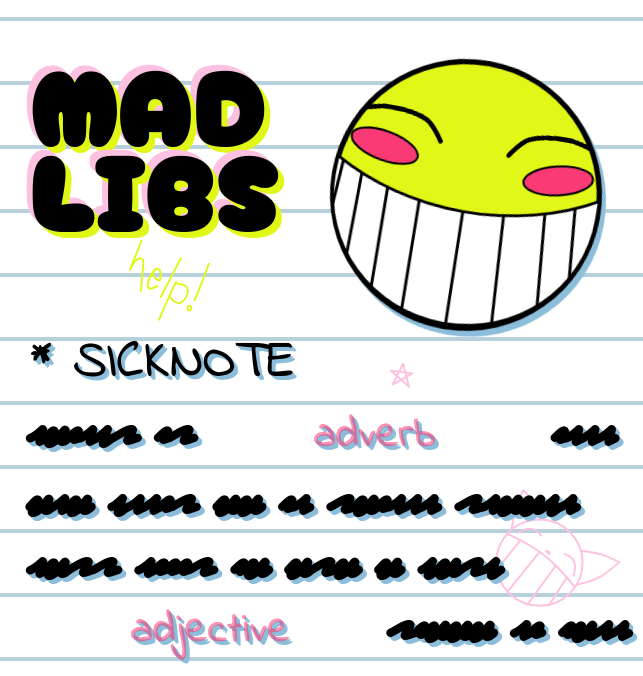 MAD
LIBS
help!
* SICKNOTE
adverb
adjective